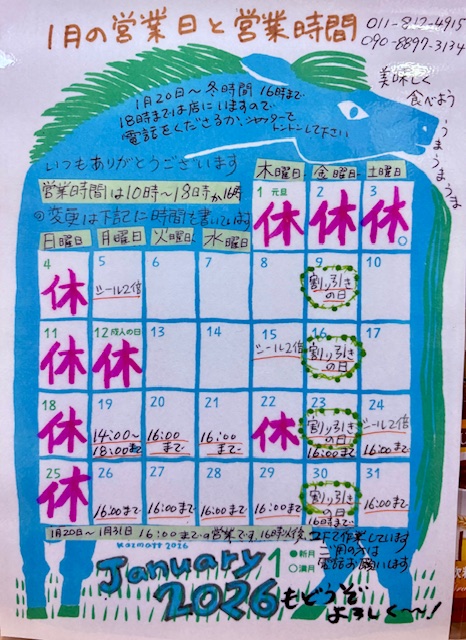 1月の営業日と営業時間
011-812-4915
090-8897-3134
1月20日～冬時間 16時まで
18時までは店にいますので
電話をくださるか、シャッターを
トントンして下さい
美味しく
食べよう
うまうまうま
いつもありがとうございます
営業時間は10時～18時か16時
◎変更は下記に時間を書いています
木曜日 金曜日 土曜日
1 元旦 2 3
休 休 休
日曜日 月曜日 火曜日 水曜日
4 5 6 7 8 9 10
休 シール2倍 割り引きの日
11 12 成人の日 13 14 15 16 17
休 休 シール2倍 割り引きの日
18 19 20 21 22 23 24
休 14:00～18:00まで 16:00まで 16:00まで 休 割り引きの日 16:00まで シール2倍 16:00まで
25 26 27 28 29 30 31
休 16:00まで 16:00まで 16:00まで 16:00まで 割り引きの日 16時まで 16:00まで
1月20日～1月31日 16:00までの営業です。16時以後
2Fで作業しています
ご用の方は
電話お願います
January 1
●新月
○満月
2026
もどうぞ
よろしく～～!